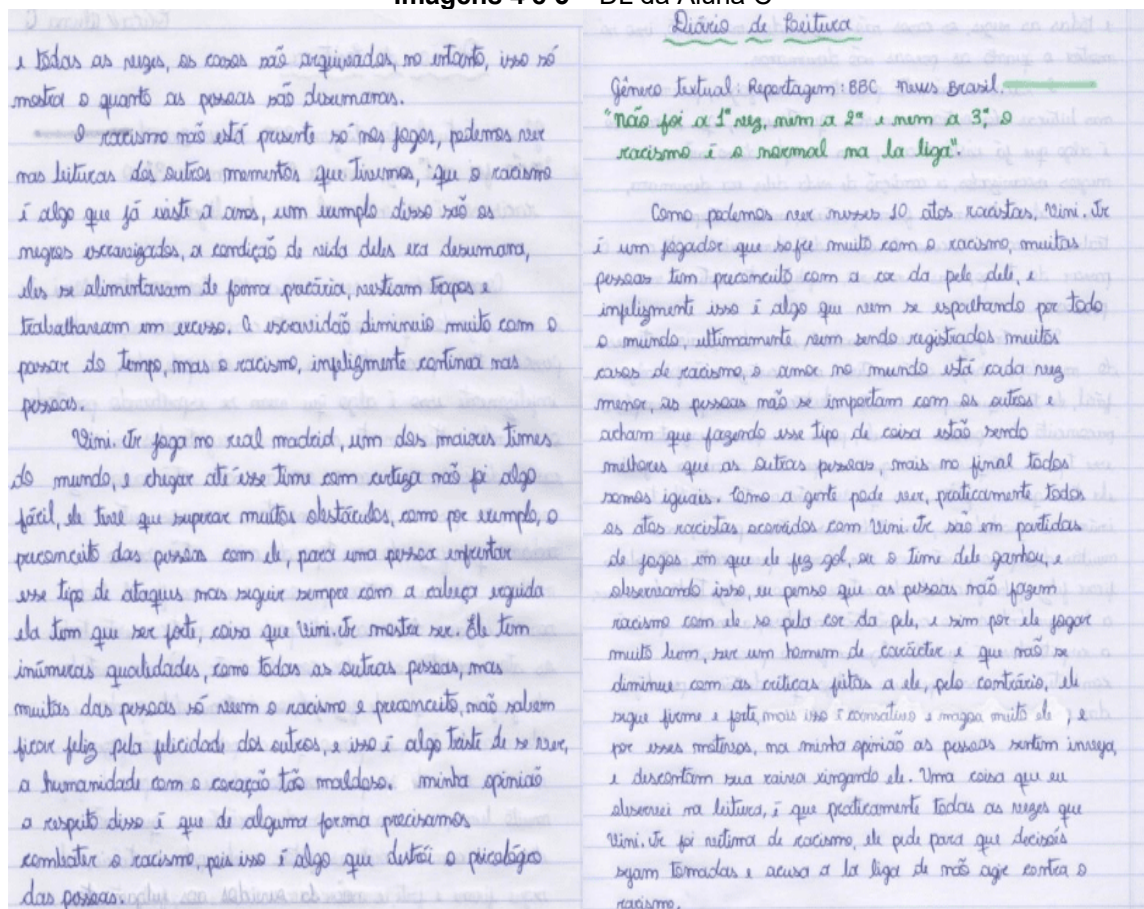 Imagens 4 e 5 – DL da Aluna C
e todas as vezes, os casos são arquivados, no entanto, isso só
mostra o quanto as pessoas são desumanas.
O racismo não está presente só nos jogos, podemos ver
nas leituras dos outros momentos que tivemos, que o racismo
é algo que já existe a anos, um exemplo disso são os
negros escravizados, a condição de vida deles era desumana,
eles se alimentavam de forma precária, vestiam trapos e
trabalhavam em excesso. A escravidão diminuio muito com o
passar do tempo, mas o racismo, infelizmente continua nas
pessoas.
Vini. Jr joga no real madrid, um dos maiores times
do mundo, e chegar até esse time com certeza não foi algo
fácil, ele teve que superar muitos obstáculos, como por exemplo, o
preconceito das pessoas com ele, para uma pessoa enfrentar
esse tipo de ataques mas seguir sempre com a cabeça erguida
ela tem que ser forte, coisa que Vini. Jr mostra ser. Ele tem
inúmeras qualidades, como todas as outras pessoas, mas
muitas das pessoas só veem o racismo e preconceito, não sabem
ficar feliz pela felicidade dos outros, e isso é algo triste de se ver,
a humanidade com o coração tão maldoso. minha opinião
a respeito disso é que de alguma forma precisamos
combater o racismo, pois isso é algo que destrói o psicológico
das pessoas.
Diário de Leitura
Gênero textual: Reportagem: BBC News Brasil.
"não foi a 1ª vez, nim a 2ª e nem a 3ª, o
racismo é o normal na la liga".
Como podemos ver nesses 10 atos racistas, Vini. Jr
é um jogador que sofre muito com o racismo, muitas
pessoas tem preconceito com a cor da pele dele, e
infelizmente isso é algo que vem se espalhando por todo
o mundo, ultimamente vem sendo registrados muitos
casos de racismo, o amor no mundo está cada vez
menor, as pessoas não se importam com os outros e
acham que fazendo esse tipo de coisa estão sendo
milhores que as outras pessoas, mais no final todos
somos iguais. Como a gente pode ver, praticamente todos
os atos racistas, ocorridos com Vini. Jr são em partidas
de jogos em que ele fez gol, ou o time dele ganhou, e
observando isso, eu penso que as pessoas não fazem
racismo com ele so pela cor da pele, e sim por ele jogar
muito bem, ser um homem de carácter e que não se
diminue com as criticas feitas a ele, pelo contrário, ele
segue firme e forte, mais isso é cansativo e magoa muito ele, e
por esses motivos, na minha opinião as pessoas sentem inveja,
e descontam sua raiva xingando ele. Uma coisa que eu
observei na leitura, é que praticamente todas as vezes que
Vini. Jr foi vitima de racismo, ele pede para que decisões
sejam tomadas e acusa a la liga de não agir contra o
racismo.